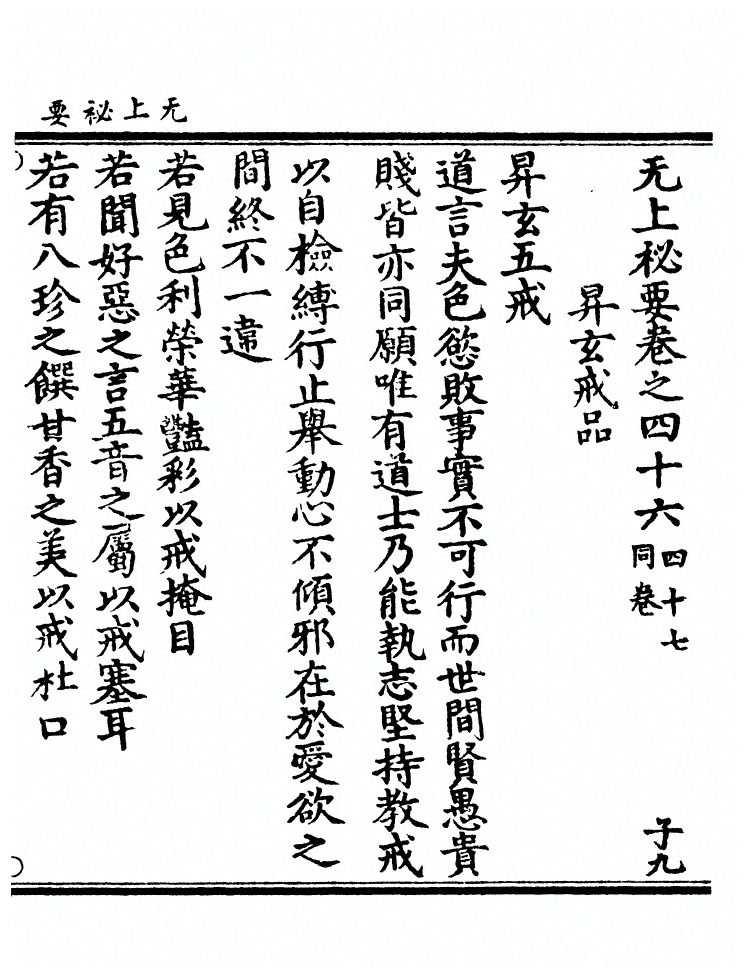 无上秘要
无上秘要卷之四十六 四十七同卷 子九
昇玄戒品
昇玄五戒
道言夫色慾敗事實不可行而世間賢愚貴
賤皆亦同願唯有道士乃能執志堅持教戒
以自檢縳行止舉動心不傾邪在於愛欲之
間終不一違
若見色利榮華豔彩以戒掩目
若聞好惡之言五音之屬以戒塞耳
若有八珍之饌甘香之美以戒杜口